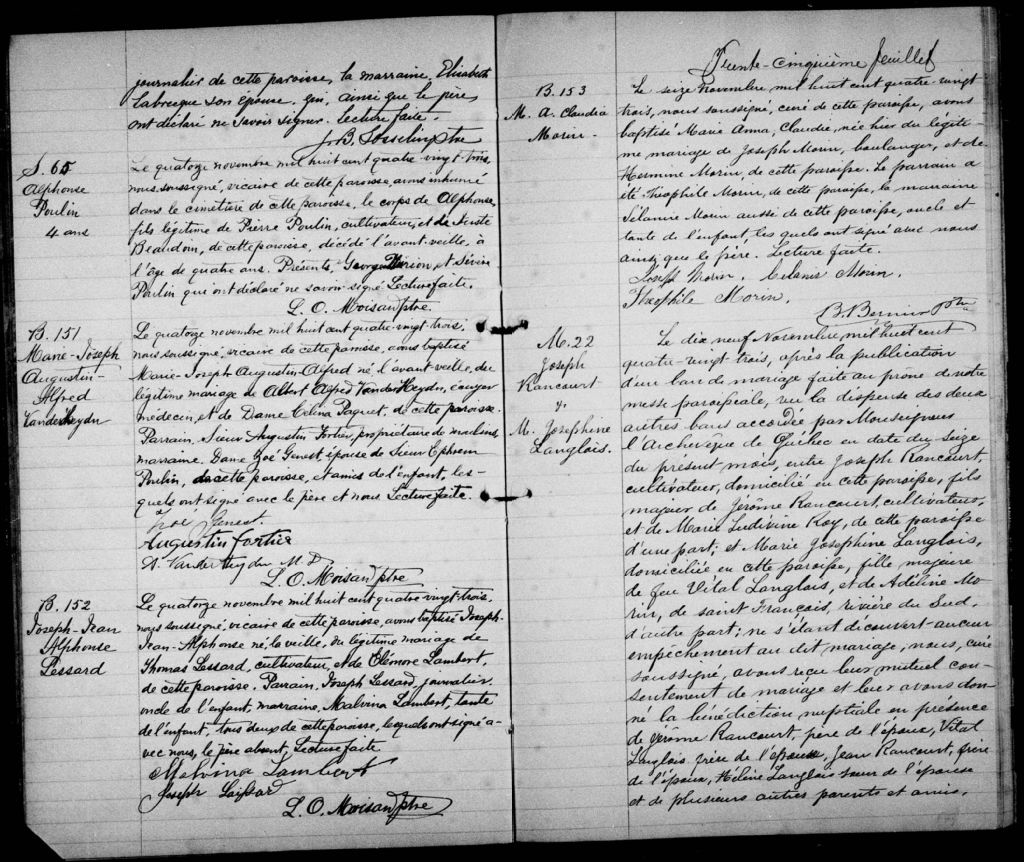 journalier de cette paroisse, la marraine, Elisabeth
Labrecque son épouse, qui, ainsi que le père,
ont déclaré ne savoir signer. Lecture faite.
J. B. Gosselin ptre
S. 65
Alphonse
Poulin
4 ans
Le quatorze novembre mil huit cent quatre-vingt-trois,
nous soussigné, vicaire de cette paroisse, avons inhumé
dans le cimetière de cette paroisse, le corps de Alphonse,
fils légitime de Pierre Poulin, cultivateur, et de
Beaudoin, de cette paroisse, décédé l'avant-veille, à
l'âge de quatre ans. Présents, George et Sévérin
Poulin qui ont déclaré ne savoir signé Lecture faite.
L. O. Moisan Ptre.
B. 151
Marie-Joseph
Augustin-
Alfred
VanderHeydn
Le quatorze novembre mil huit cent quatre-vingt-trois,
nous soussigné, vicaire de cette paroisse, avons baptisé
Marie-Joseph Augustin-Alfred né l'avant veille, du
légitime mariage de Albert Alfred VanderHeydn, écuyer
médecin, et de Dame Célina Paquet, de cette paroisse.
Parrain, Sieur Augustin Fortier, propriétaire de moulins,
marraine, Dame Zoé Genest épouse de Sieur Ephrem
Poulin, de cette paroisse, et amis de l'enfant, les-
quels ont signé avec le père et nous Lecture faite.
Zoé Genest.
Augustin Fortier
A. VanderHeyden M.D
L. O. Moisan Ptre
B. 152
Joseph-Jean
Alphonse
Lessard
Le quatorze novembre mil huit cent quatre vingt-trois.
nous soussigné, vicaire de cette paroisse, avons baptisé Joseph-
Jean-Alphonse né, la veille, du légitime mariage de
Thomas Lessard, cultivateur, et de Elémore Lambert,
de cette paroisse. Parrain, Joseph Lessard, journalier,
oncle de l'enfant, marraine, Malvina Lambert, tante
de l'enfant, tous deux de cette paroisse, lesquels ont signé a-
vec nous, le père absent, Lecture faite
Malvina Lambert
Joseph
L. O. Moisan Ptre
Trente-cinquième feuillet
B. 153
M. A. Claudia
Morin.
Le seize Novembre, mil huit cent quatre vingt
trois, nous soussigné, curé de cette paroisse, avons
baptisé Marie Anna, Claudia, née hier du légiti-
me mariage de Joseph Morin, boulanger, et de
Hermine Morin, de cette paroisse. Le parrain a
été Théophile Morin, de cette paroisse, la marraine
Mélanie Morin aussi de cette paroisse, oncle et
tante de l'enfant, les quels ont signé avec nous
ainsi que le père. Lecture faite.
Joseph Morin. Mélanie Morin.
Théophile Morin.
B. Bernier Ptre
M. 22
Joseph
Rancourt
&
M. Josephine
Langlois.
Le dix neuf Novembre, mil huit cent
quatre-vingt-trois, après la publication
d'un ban de mariage faite au prône de notre
messe paroissiale, vu la dispense des deux
autres bans accordée par Monseigneur
l'Archevêque de Québec en date du seize
du présent mois, entre Joseph Rancourt,
cultivateur, domicilié en cette paroisse, fils
majeur de Jérôme Rancourt, cultivateur,
et de Marie Ludivine Roy, de cette paroisse
d'une part; et Marie Josephine Langlois,
domiciliée en cette paroisse, fille majeure
de feu Vital Langlois, et de Adeline Mo-
rin, de saint François, rivière du Sud,
d'autre part; ne s'étant découvert aucun
empêchement au dit mariage, nous, curé
soussigné, avons reçu leur mutuel con-
sentement de mariage et leur avons don-
né la bénédiction nuptiale en présence
de Jérôme Rancourt, père de l'époux, Vital
Langlois frère de l'épouse, Jean Rancourt, frère
de l'époux, Hélène Langlois soeur de l'épouse
et de plusieurs autres parents et amis.